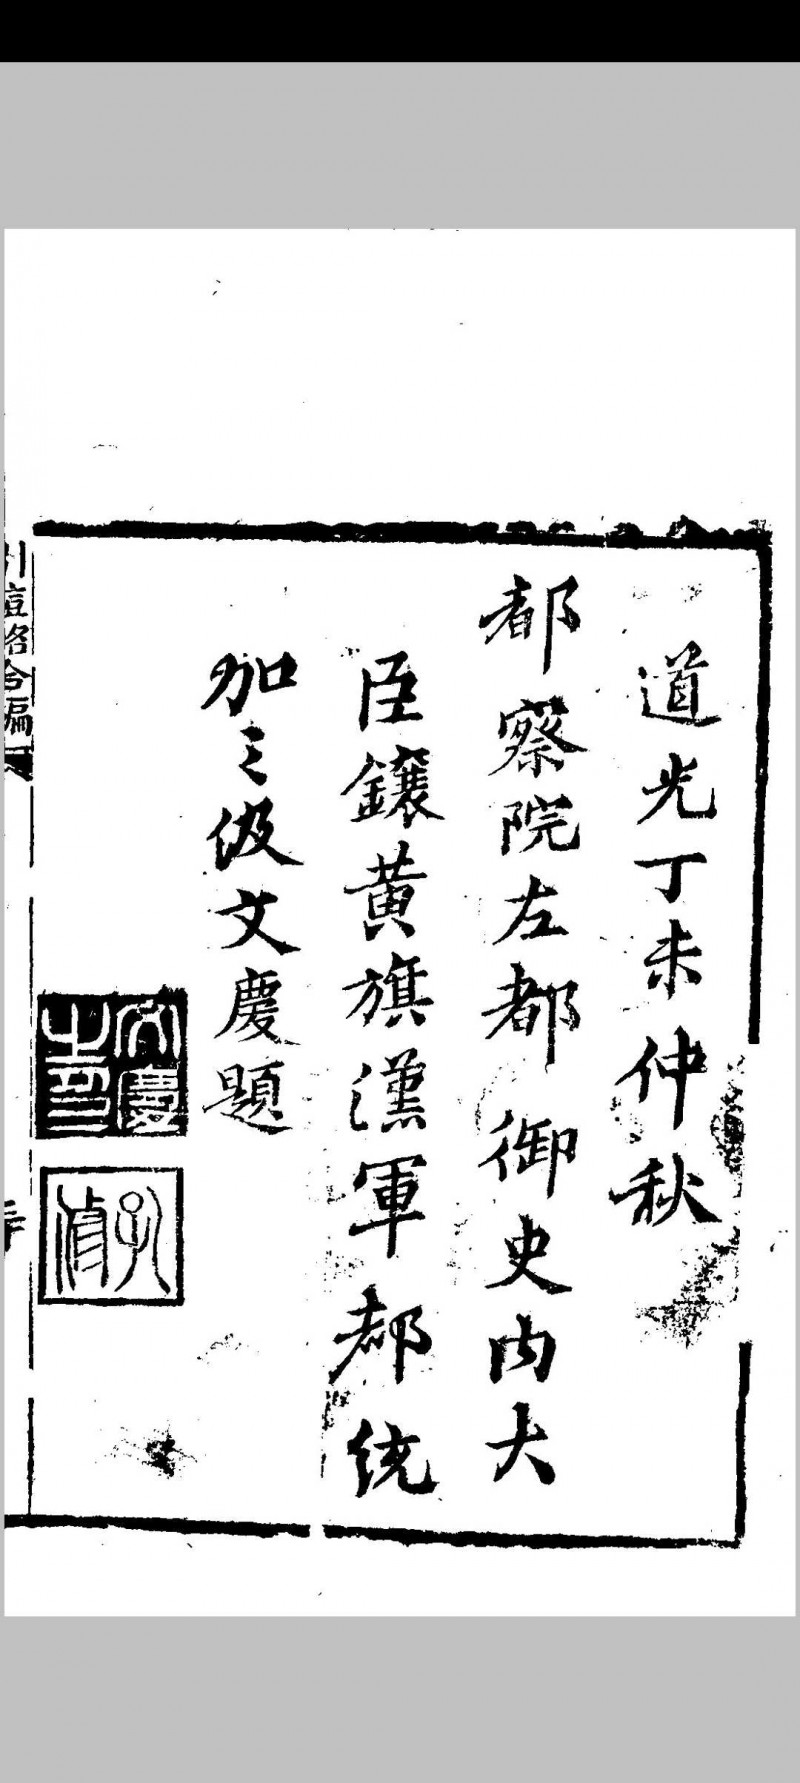 道光丁未仲秋
都察院左都御史內大
臣鑲黃旗漢軍都統
加三级文慶題
文慶
孔修
引痘略合編
序